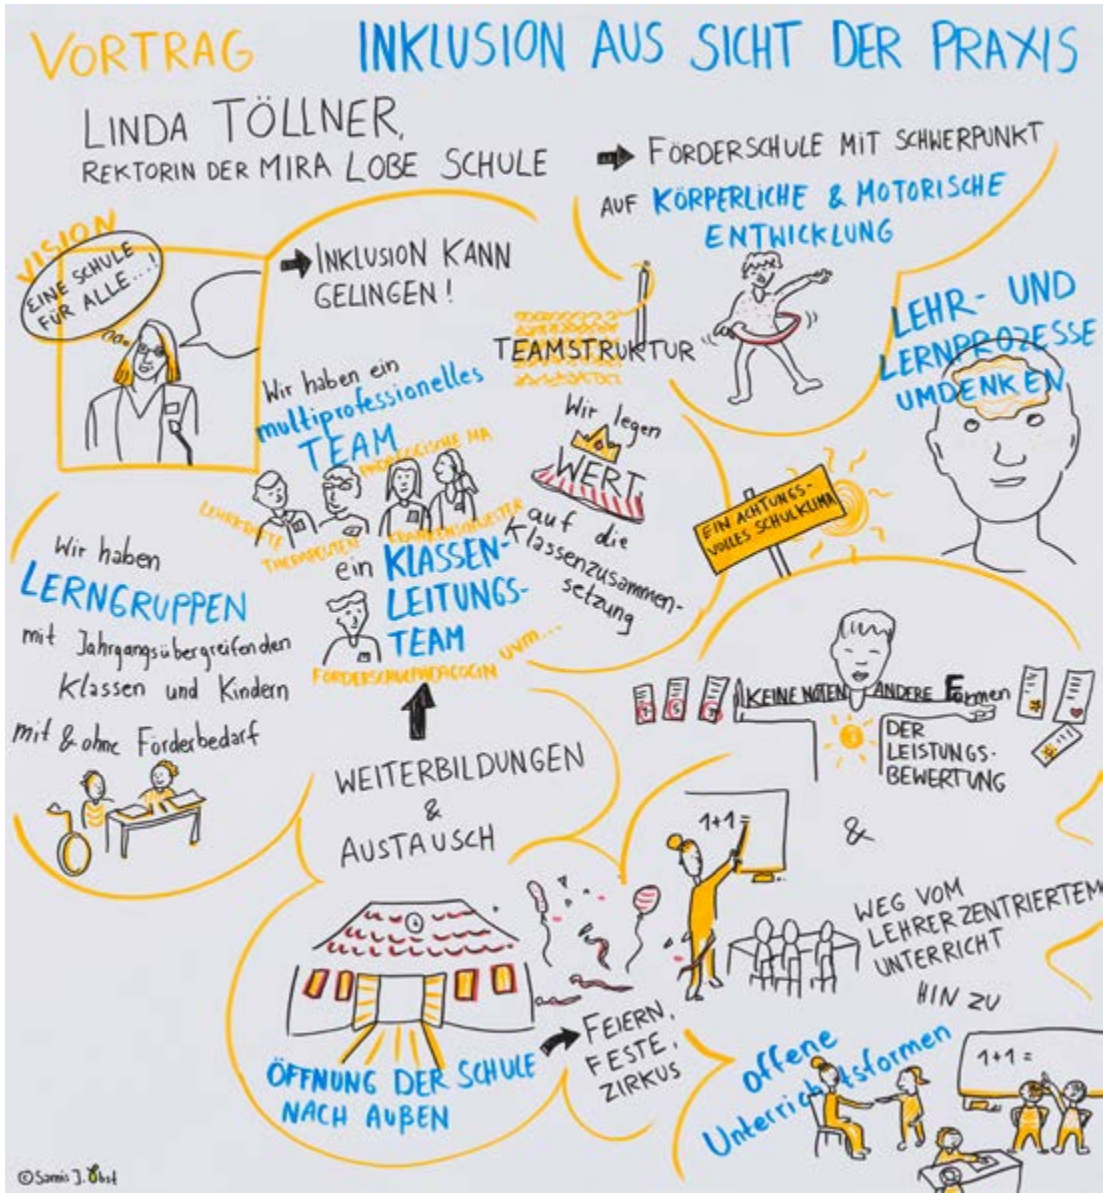 VORTRAG
INKLUSION AUS SICHT DER PRAXIS
LINDA TÖLLNER,
REKTORIN DER MIRA LOBE SCHULE
➡ FÖRDERSCHULE MIT SCHWERPUNKT
AUF KÖRPERLICHE & MOTORISCHE
ENTWICKLUNG
VISION
EINE SCHULE
FÜR ALLE...!
➡ INKLUSION KANN
GELINGEN!
TEAMSTRUKTUR
LEHR- UND
LERNPROZESSE
UMDENKEN
Wir haben ein
multiprofessionelles
TEAM
PÄDAGOGISCHE MA
LEHRKRÄFTE
THERAPEUTEN
KRANKENSCHWESTER
ein KLASSEN-
LEITUNGS-
TEAM
FÖRDERSCHULPÄDAGOGIN uvm...
Wir legen
WERT
auf die
Klassenzusammen-
setzung
EIN ACHTUNGS-
VOLLES SCHULKLIMA
Wir haben
LERNGRUPPEN
mit Jahrgangsübergreifenden
Klassen und Kindern
mit & ohne Förderbedarf
WEITERBILDUNGEN
&
AUSTAUSCH
KEINE NOTEN ANDERE Formen
DER
LEISTUNGS-
BEWERTUNG
&
1+1=
WEG VOM
LEHRERZENTRIERTEM
UNTERRICHT
HIN ZU
offene
Unterrichtsformen
1+1=
ÖFFNUNG DER SCHULE
NACH AUßEN
➡ FEIERN,
FESTE,
ZIRKUS
© Samis J. Obst